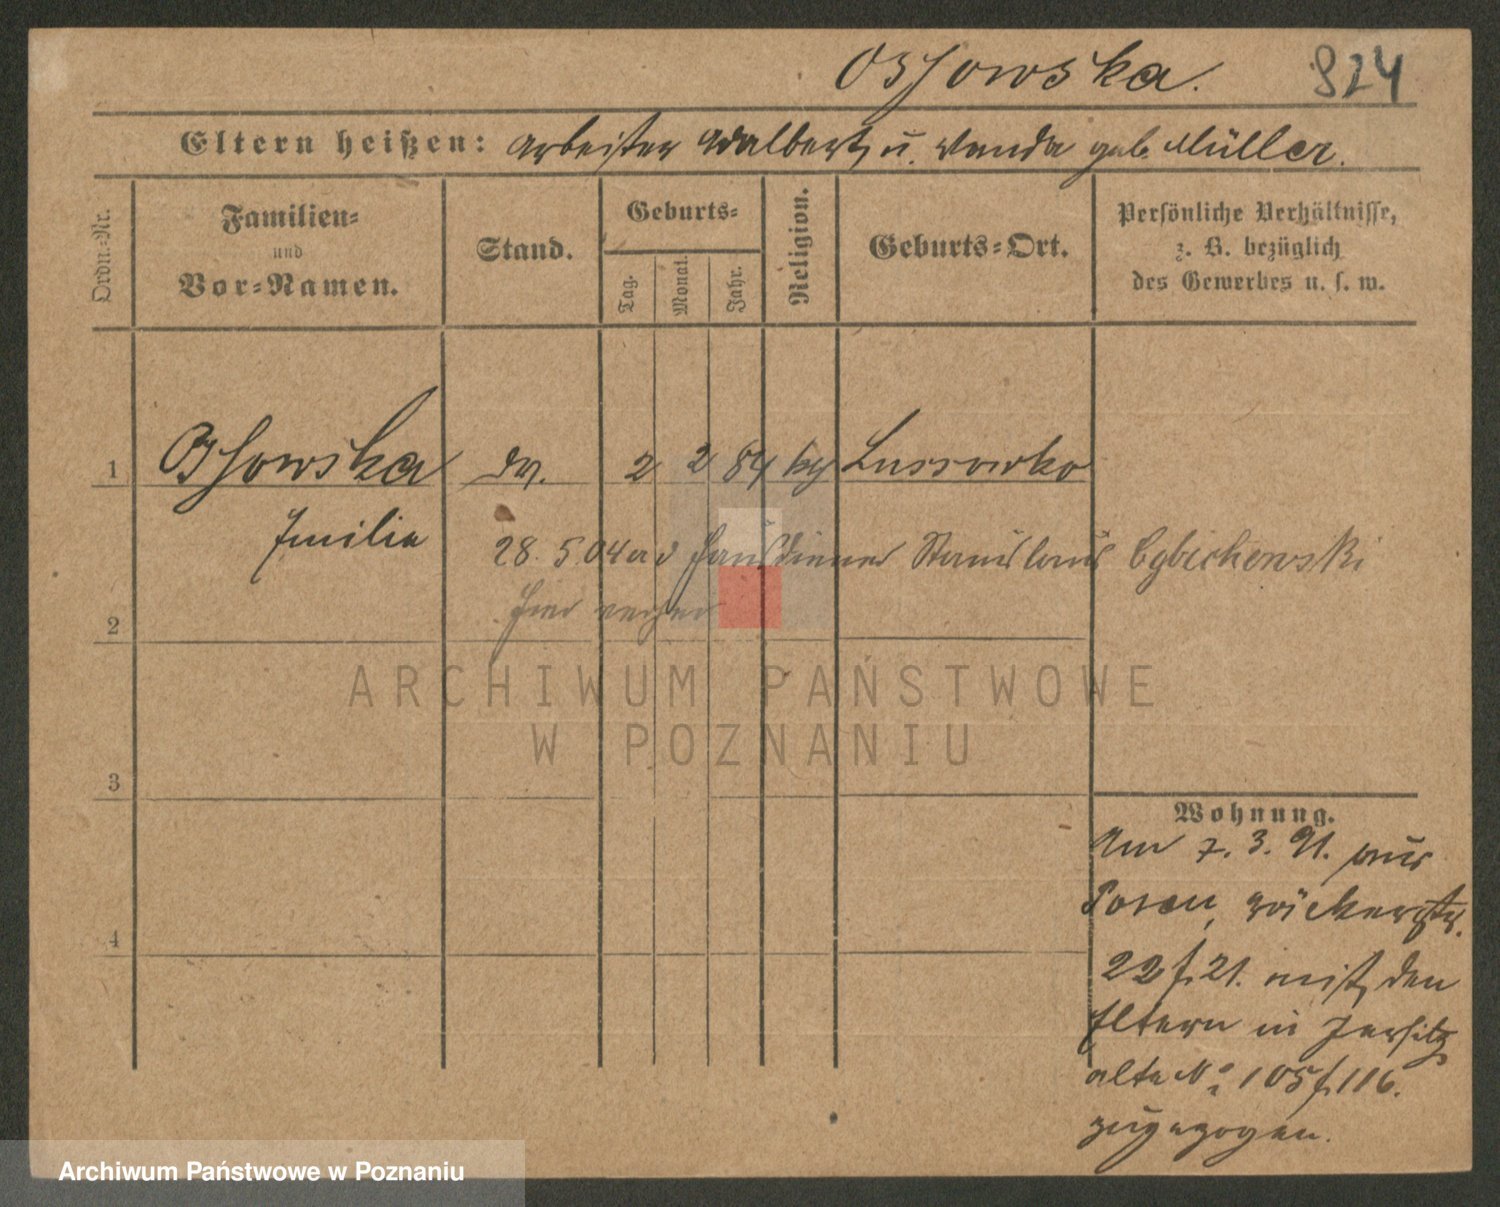 Ossowska. 824
Eltern heißen: Arbeiter Adalbert u. Wanda geb. Müller.
Ordn.-Nr.
Familien-
und
Vor-Namen.
Stand.
Geburts-
Tag.
Monat.
Jahr.
Religion.
Geburts-Ort.
Persönliche Verhältnisse,
z. B. bezüglich
des Gewerbes u. s. w.
1 Ossowska 2 2 84 kg Lussowko
Emilia
28. 5. 04 Hausdiener Stanislaus Cybichowski
2 hier verh
3
4
ARCHIWUM PAŃSTWOWE
W POZNANIU
Wohnung.
Am 7. 3. 91. aus
Posen,
22 f. 21. mit den
Eltern in Jersitz
alte No 105 f. 116.
zugezogen.
Archiwum Państwowe w Poznaniu